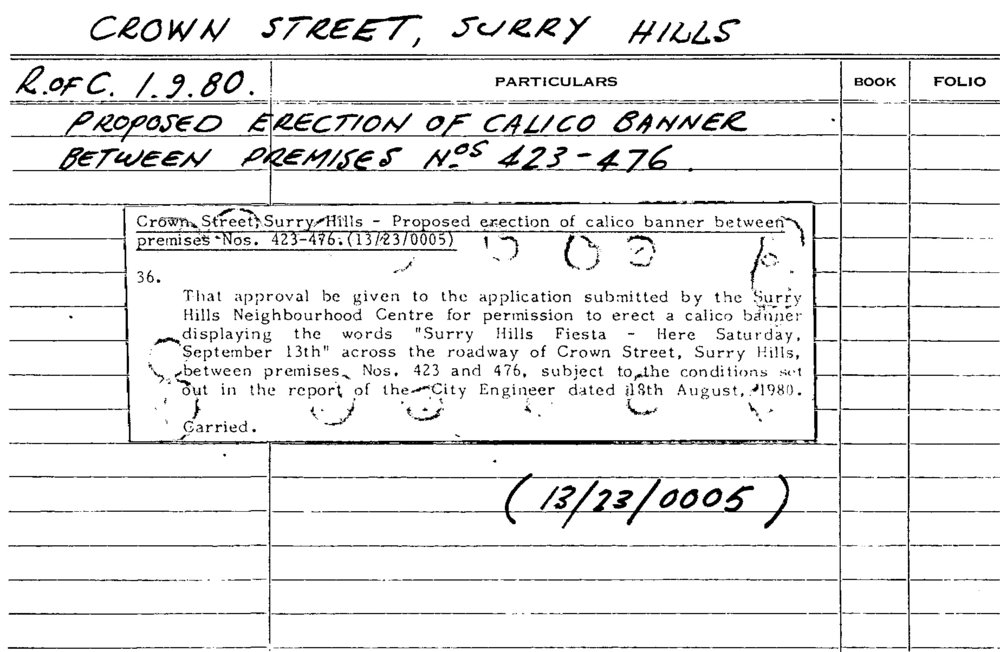 CROWN STREET, SURRY HILLS
R. OF C. 1.9.80. PARTICULARS BOOK FOLIO
PROPOSED ERECTION OF CALICO BANNER
BETWEEN PREMISES Nos 423-476.
Crown Street, Surry Hills - Proposed erection of calico banner between
premises Nos. 423-476. (13/23/0005)
36.
That approval be given to the application submitted by the Surry
Hills Neighbourhood Centre for permission to erect a calico banner
displaying the words "Surry Hills Fiesta - Here Saturday,
September 13th" across the roadway of Crown Street, Surry Hills,
between premises Nos. 423 and 476, subject to the conditions set
out in the report of the City Engineer dated 18th August, 1980.
Carried.
(13/23/0005)